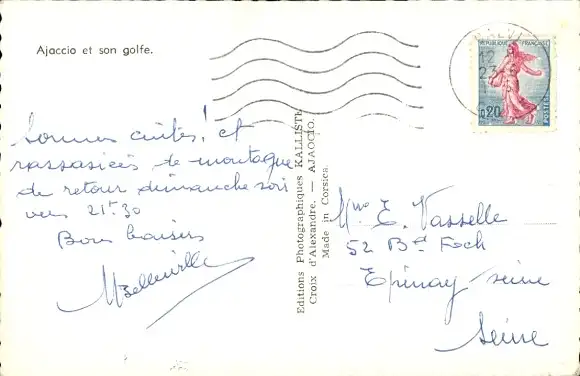 Ajaccio et son golfe.
CALVI
12
23
RÉPUBLIQUE FRANÇAISE
0,20
POSTES
Sommes cuites! et
rassasiées de montagne
de retour dimanche soir
vers 21h30
Bons baisers
Editions Photographiques KALLISTE
Croix d'Alexandre. — AJACCIO.
Made in Corsica.
Mme E. Vasselle
52 Bd Foch
Epinay seine
Seine